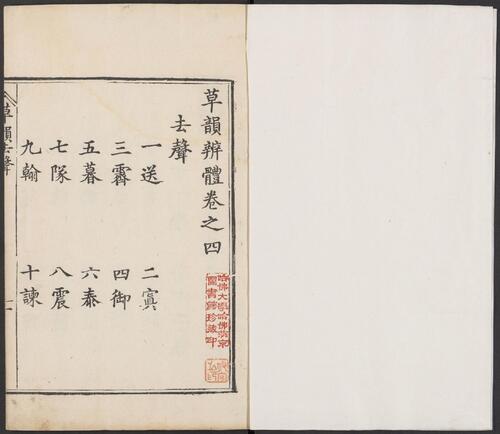 草韻辨體卷之四
去聲
一送 二寘
三霽 四御
五暮 六泰
七隊 八震
九翰 十諫
草韻去聲
哈佛大學哈佛燕京
圖書館珍藏印